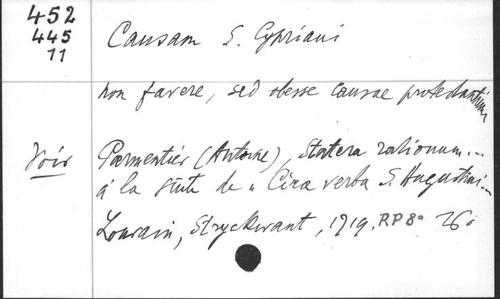 452
445
11
Causam S. Cypriani
non favere, sed obesse causae protestantium
Voir Parmentier (Antoine), Statera rationum...
à la suite de "Circa verba S. Augustini...
Lovain, Stryckwant, 1719. RP 8° 260